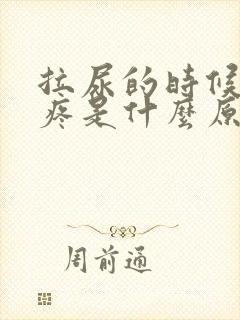 拉尿的時候
疼是什麼原
周前通